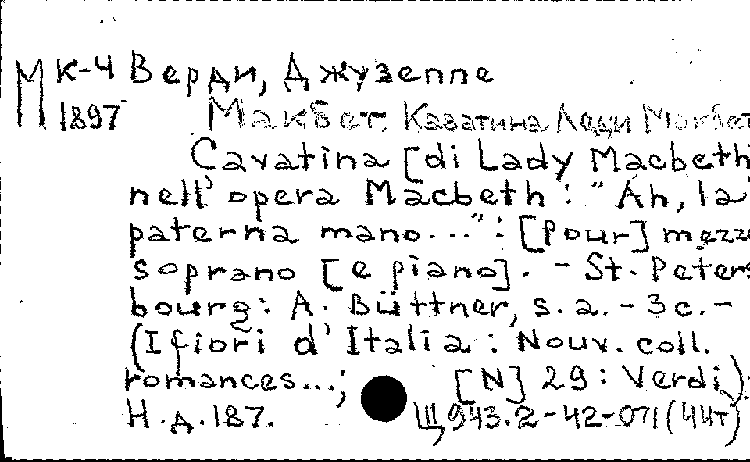 М К-4 Верди, Джузеппе
1897 Макбет. Казатина Леди Макбет
Cavatina [di Lady Macbeth
nell' opera Macbeth : "Ah, la
paterna mano...": [Pour] mezzo
soprano [e piano]. - St. Peters
bourg: A. Büttner, s. a. - 3 c. -
(I fiori d' Italia : Nouv. coll.
romances...; [N] 29 : Verdi).
Н.д.187. Щ943.2-42-071(44т)